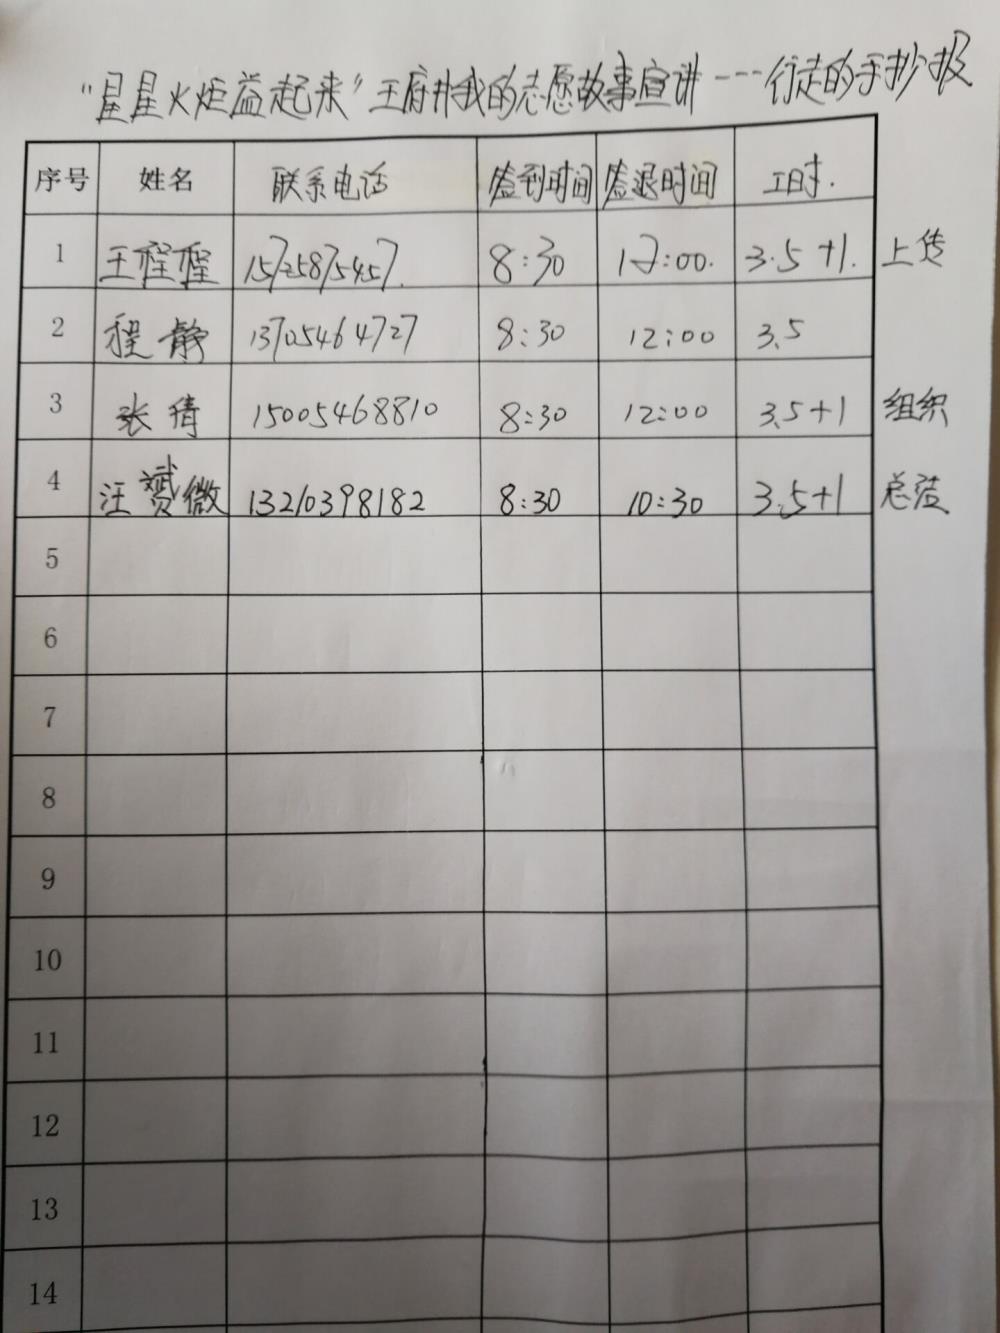 “星星火炬益起来”王府井我的志愿故事宣讲---行走的手抄报
序号 姓名 联系电话 签到时间 签退时间 工时.
1 王程程 15725875457. 8:30 12:00. 3.5+1. 上传
2 程静 13705464727 8:30 12:00 3.5
3 张倩 15005468810 8:30 12:00 3.5+1 组织
4 汪赟微 13210398182 8:30 10:30 3.5+1 总结
5
6
7
8
9
10
11
12
13
14